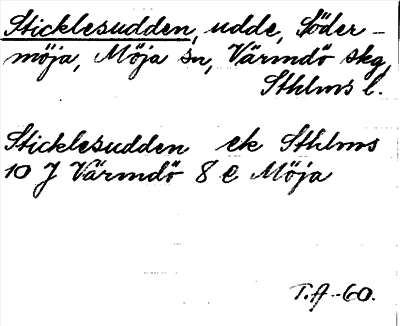 Sticklesudden, udde, Söder-
möja, Möja sn, Värmdö skg,
Sthlms l.
Sticklesudden ek Sthlms
10 J Värmdö 8 e Möja
T.A -60.